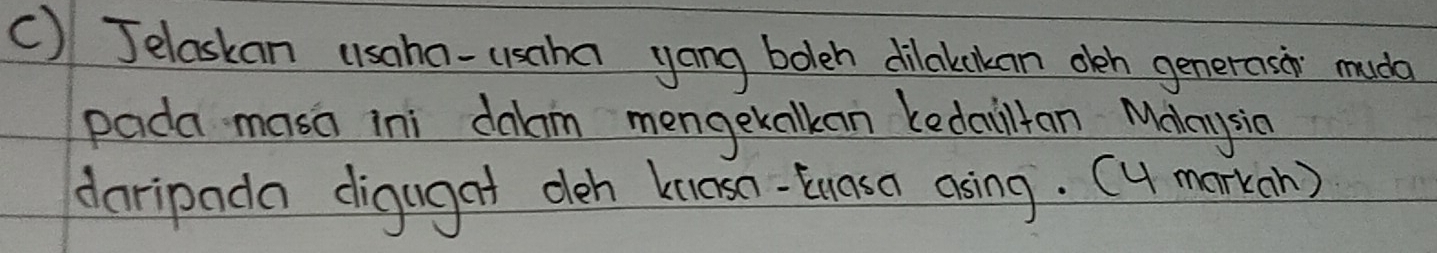 C) Jelaskan usaha-usaha yang boleh dilakukan oleh generasi muda
pada masa ini dalam mengekalkan kedaultan Malaysia
daripada digugat oleh kuasa-kuasa asing. (4 markah)